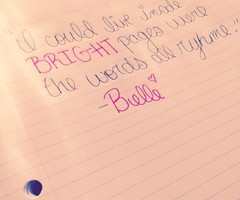 "I could live inside
BRIGHT pages were
the words all ryhme."
- Bielle